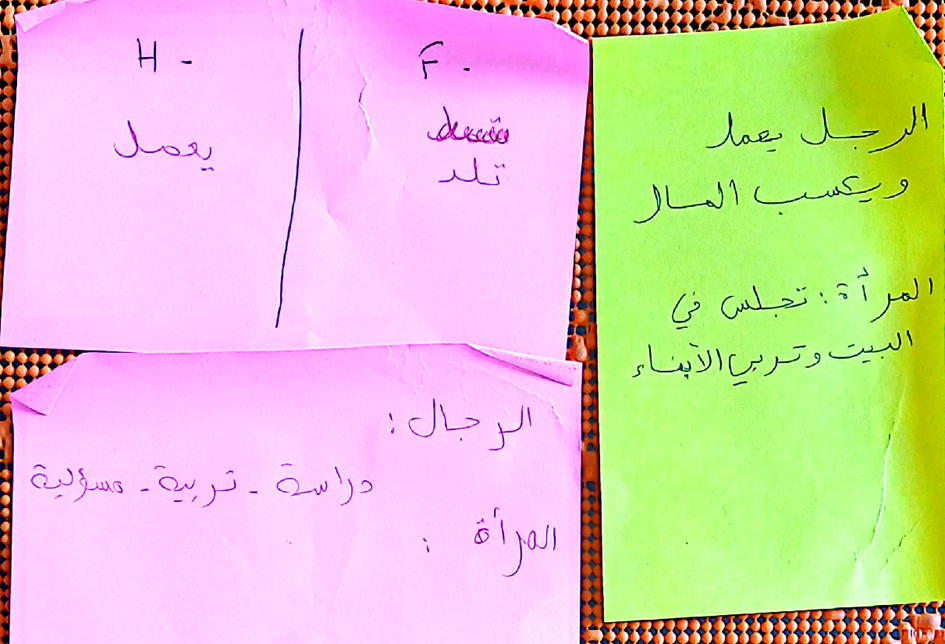 H -
يعمل
F -
تلد
الرجل يعمل
ويكسب المال
المرأة : تجلس في
البيت وتربي الأبناء
الرجال :
دراسة - تربية - مسؤلية
المرأة :